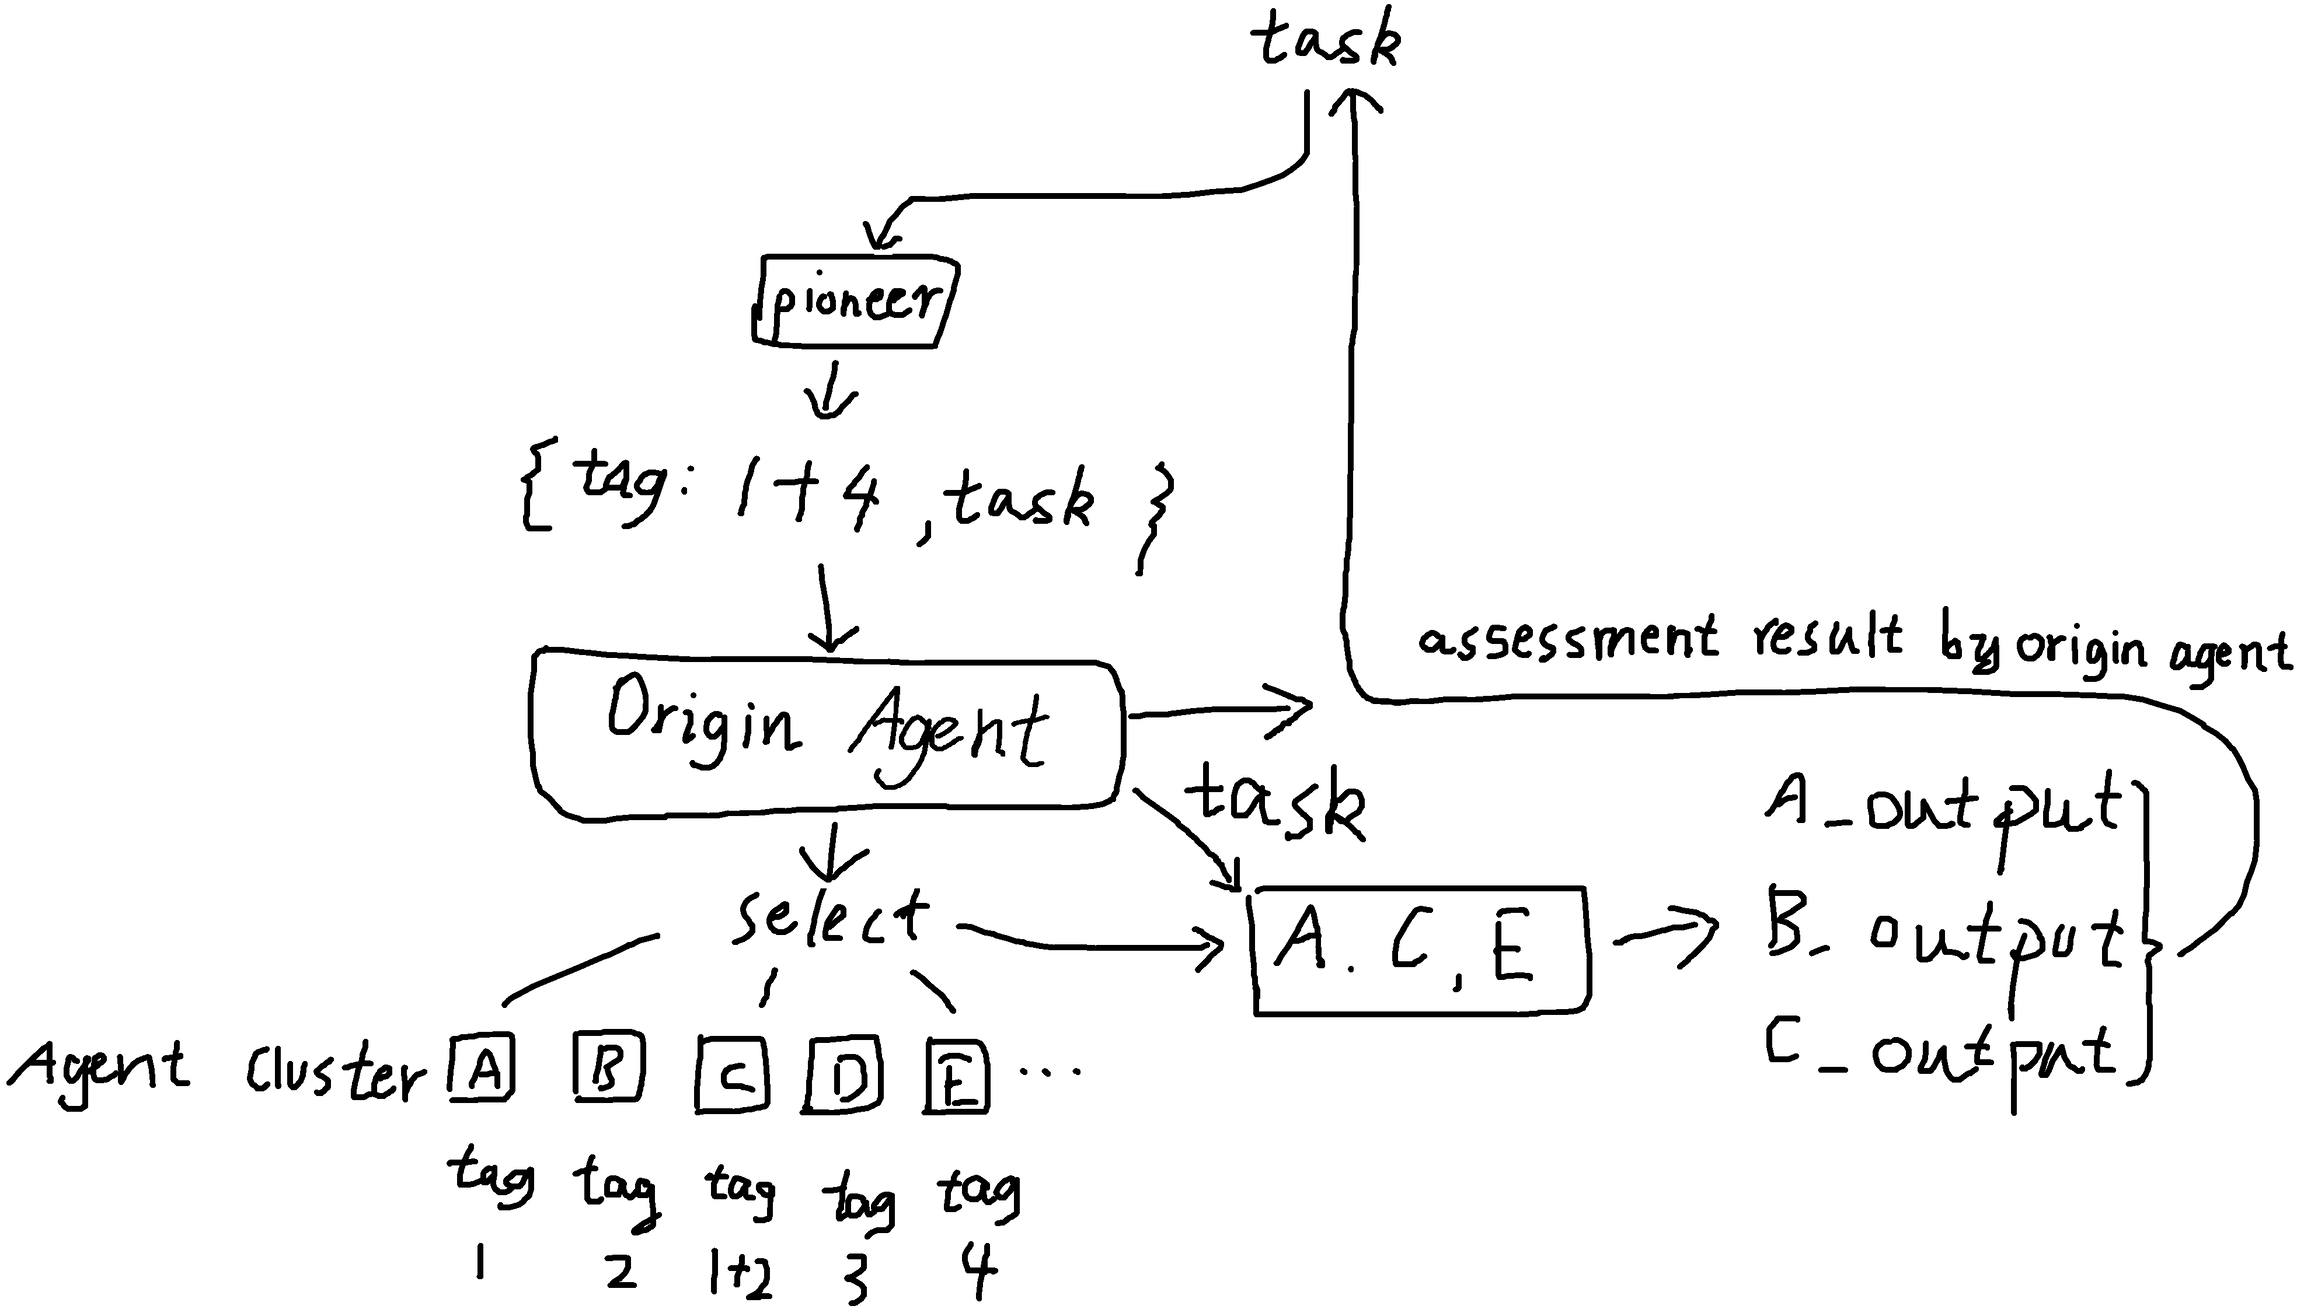 task
pioneer
{ tag: 1+4 , task }
Origin Agent
assessment result by origin agent
task
select
A. C, E
A_output
B_output
C_output
Agent Cluster A B C D E ...
tag tag tag tag tag
1 2 1+2 3 4